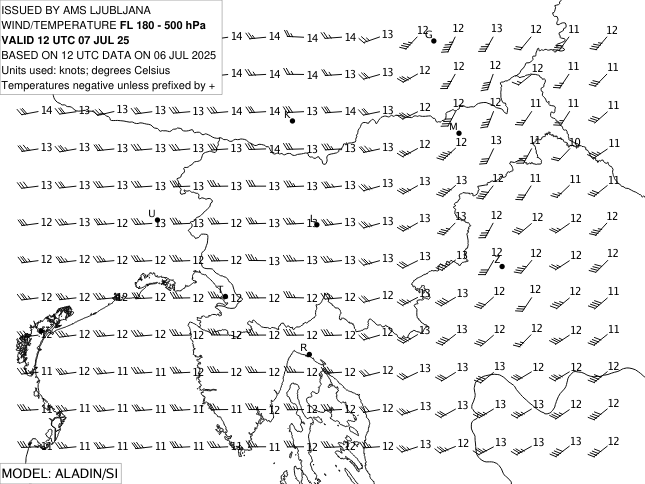 ISSUED BY AMS LJUBLJANA
WIND/TEMPERATURE FL 180 - 500 hPa
VALID 12 UTC 07 JUL 25
BASED ON 12 UTC DATA ON 06 JUL 2025
Units used: knots; degrees Celsius
Temperatures negative unless prefixed by +
14 14 14 14 13 12 12 13 12 11 12
G
14 14 14 13 12 12 12 12 11 11
14 13 13 13 13 14 13 14 13 12 12 12 11 11 11
K
M
13 13 13 13 13 13 14 13 13 13 12 12 13 11 10 11
13 13 13 13 13 13 13 13 13 13 13 13 12 11 12 11
12 13 12 13 13 12 13 13 13 13 13 13 12 12 12 12
U
L
12 12 12 12 13 13 13 13 13 13 13 13 12 12 12 12
Z
12 12 12 12 12 12 12 12 12 12 13 13 12 12 12 12
T
12 12 12 12 12 12 12 12 12 12 13 12 12 12 11 11
R
11 12 11 11 12 11 12 12 12 12 13 13 13 12 12 12
11 11 11 11 11 11 11 12 12 12 13 13 13 13 12 12
11 11 11 11 11 11 12 12 12 12 13 12 13 12 12 12
MODEL: ALADIN/SI